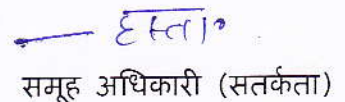 हस्ता०
समूह अधिकारी (सतर्कता)